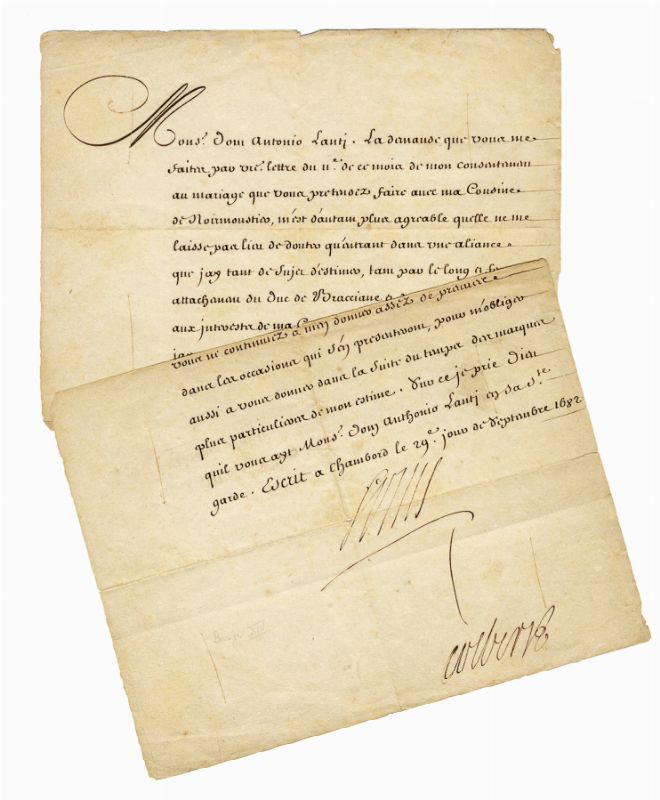 Mons.^r Dom Antonio Lanti. La demande que vous me
faites par v^re. lettre du 11^e. de ce mois de mon consentement
au mariage que vous pretendez faire avec ma Cousine
de Noirmoustier, m'est d'autant plus agreable quelle ne me
laisse pas lieu de douter qu'entrant dans une aliance
que j'ay tant de sujet d'estimer, tant par le long et
attachement du Duc de Bracciane
aux interestz de ma
vous ne continuiez a m'en donner assez de preuves
dans les occasions qui s'en presenteront, pour m'obliger
aussi a vous donner dans la suite du temps des marques
plus particulieres de mon estime. Sur ce je prie Dieu
quil vous ayt Mons.^r Dom Anthonio Lanti en sa S.^te
garde. Escrit a Chambord le 29.^e jour de Septembre 1682
Louis
Colbert